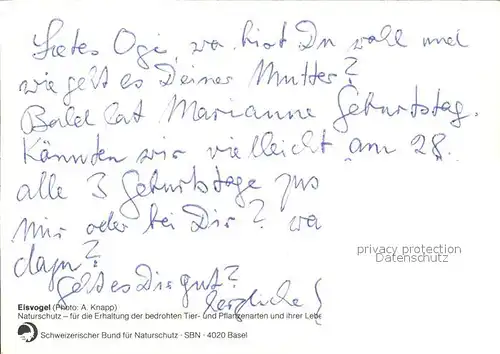 Liebes Ogi, wo bist Du wohl und
wie geht es Deiner Mutter?
Bald hat Marianne Geburtstag.
Könnten wir vielleicht am 28.
alle 3 Geburtstage
mir oder bei Dir? wo
dann?
Geht es Dir gut?
herzliche
privacy protection
Datenschutz
Eisvogel (Photo: A. Knapp)
Naturschutz – für die Erhaltung der bedrohten Tier- und Pflanzenarten und ihrer Lebe
Schweizerischer Bund für Naturschutz · SBN · 4020 Basel